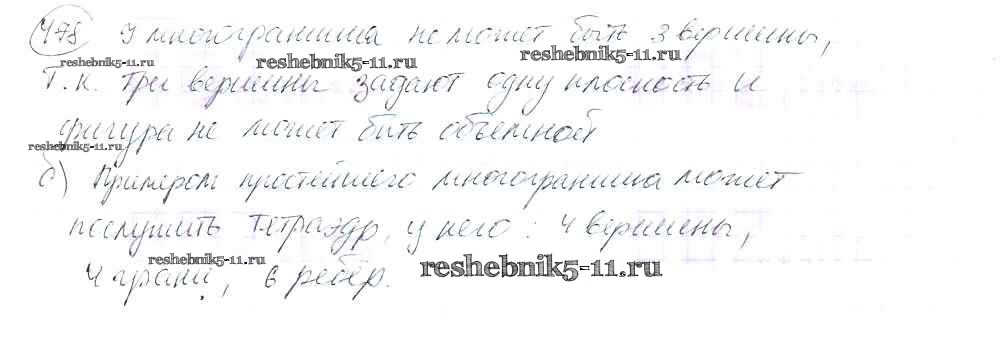 478 У многогранника не может быть 3 вершины,
reshebnik5-11.ru reshebnik5-11.ru reshebnik5-11.ru
Т.к. три вершины задают одну плоскость и
фигура не может быть объемной
reshebnik5-11.ru
б) Примером простейшего многогранника может
послужить тетраэдр, у него: 4 вершины,
reshebnik5-11.ru reshebnik5-11.ru
4 грани, 6 ребер.